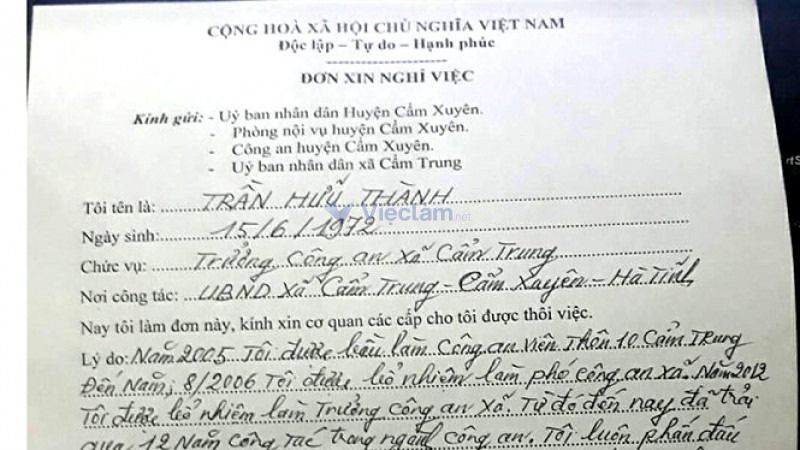 CỘNG HOÀ XÃ HỘI CHỦ NGHĨA VIỆT NAM
Độc lập – Tự do – Hạnh phúc
ĐƠN XIN NGHỈ VIỆC
Kính gửi: - Uỷ ban nhân dân Huyện Cẩm Xuyên.
- Phòng nội vụ huyện Cẩm Xuyên.
- Công an huyện Cẩm Xuyên.
- Uỷ ban nhân dân xã Cẩm Trung
Tôi tên là: TRẦN HỮU THÀNH
Vieclam.net
Ngày sinh: 15/6/1972
Chức vụ: Trưởng Công an Xã Cẩm Trung
Nơi công tác: UBND Xã Cẩm Trung - Cẩm Xuyên - Hà Tĩnh
Nay tôi làm đơn này, kính xin cơ quan các cấp cho tôi được thôi việc.
Lý do: Năm 2005 Tôi được bầu làm Công an Viên Thôn 10 Cẩm Trung
Đến Năm, 8/2006 Tôi được bổ nhiệm làm phó công an xã. Năm 2012
Tôi được bổ nhiệm làm Trưởng Công an Xã. Từ đó đến nay đã trải
qua 12 Năm Công Tác trong ngành công an. Tôi luôn phấn đấu